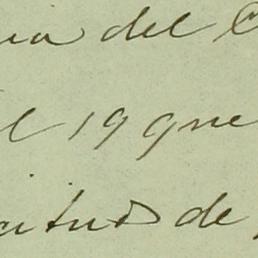 del
l 19 que
itud de